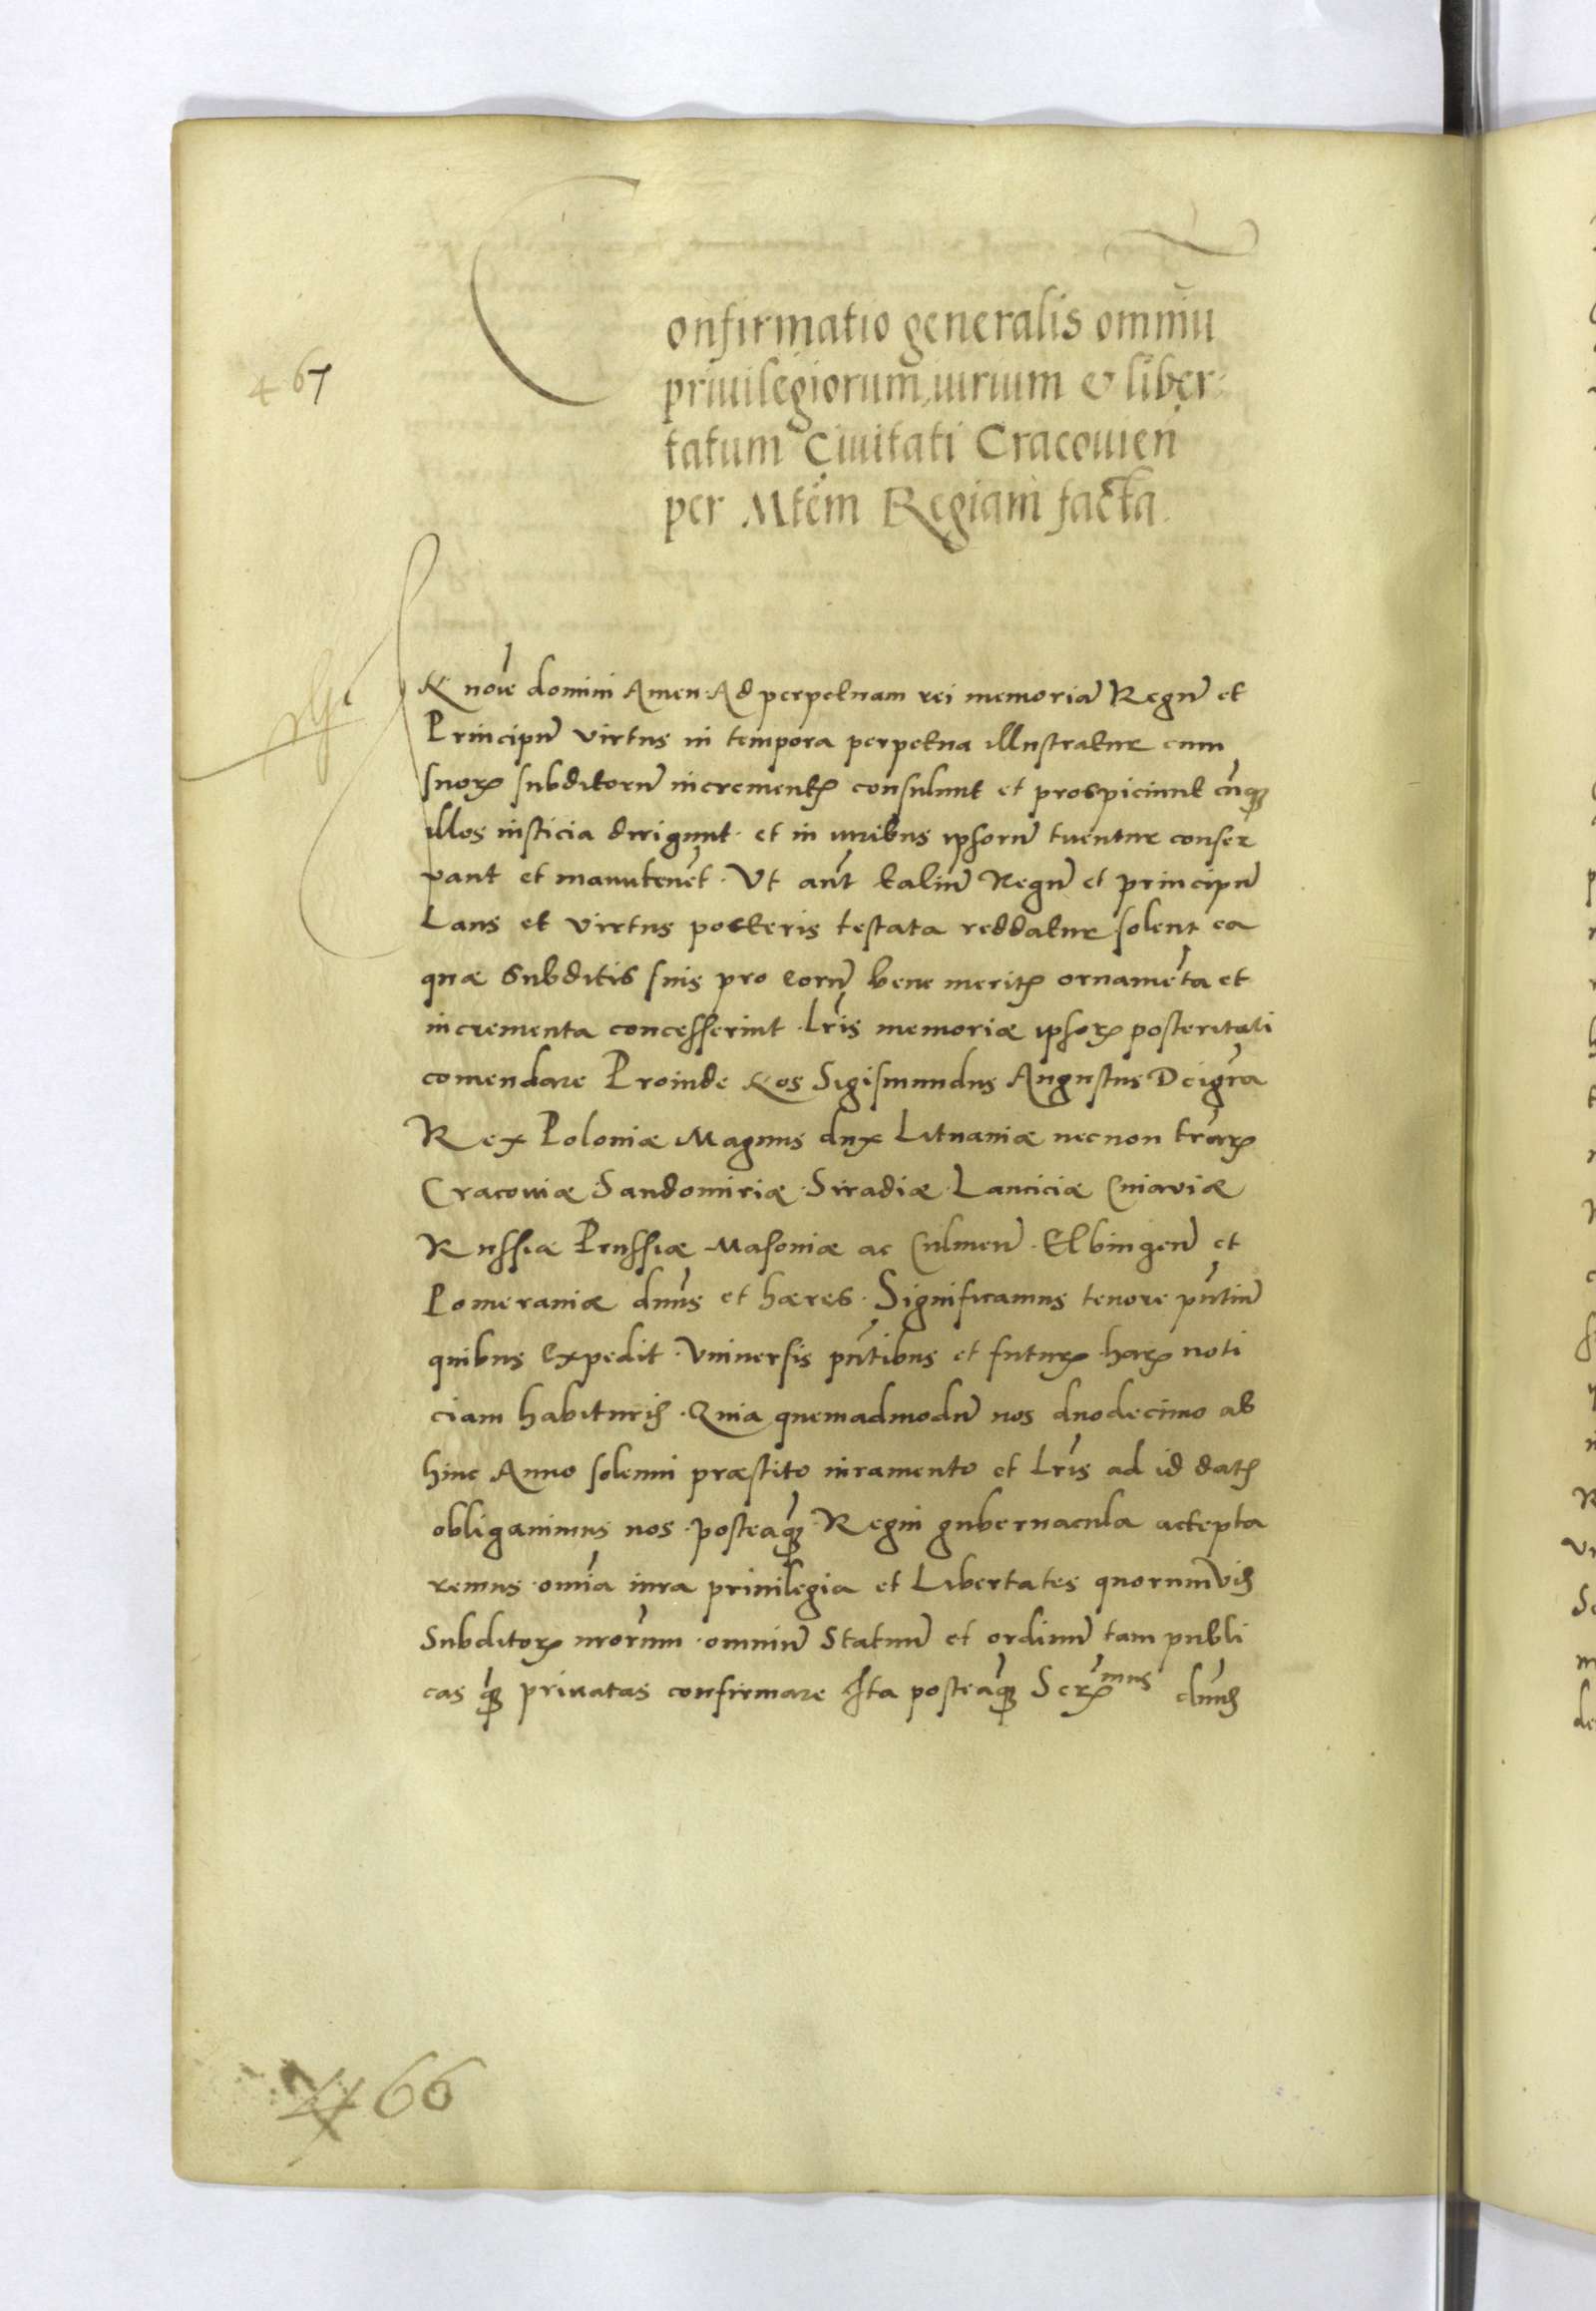 Confirmatio generalis omniū
467
priuilegiorum, iurium & liber-
tatum Ciuitati Cracouien̄
per Mtem Regiam facta.
IN noīe domini Amen. Ad perpetuam rei memoriā Regū et
Principū virtus in tempora perpetua illustratur cum
suorꝝ subditorū incrementis consulunt et prospiciunt cumꝙ
illos iusticia dirigunt. et in iuribus ipsorū tuentur conser
vant et manutenēt. Vt aūt taliū Regū et principū
Laus et virtus posteris testata reddatur solent ea
quæ subditis suis pro eorū bene meritis ornamēta et
incrementa concesserint. Lr̄is memoriæ ipsorꝝ posteritati
comendare Proinde Nos Sigismundus Augustus Dei gr̄a
Rex Poloniæ Magnus dux Lituaniæ necnon terrarꝝ
Cracouiæ. Sandomiriæ. Siradiæ. Lanciciæ Cuiaviæ
Russiæ Prussiæ Masoniæ ac Culmen̄. Elbingen̄ et
Pomeraniæ dn̄us et hæres. Significamus tenore pn̄tiū
quibus expedit. Vniuersis pn̄tibus et futurꝭ harꝝ noti
ciam habiturꝭ. Quia quemadmodū nos duodecimo ab
hinc Anno solenni præstito iuramento et Lr̄is ad id datis
obligauimus nos. posteaꝙ Regni gubernacula accepta
remus. omīa iura priuilegia et Libertates quorumvis
Subditorꝝ nr̄orum. omniū Statuū et ordinū tam publi
cas ꝙ priuatas confirmare Ita posteaꝙ Serꝝmus dn̄us
466